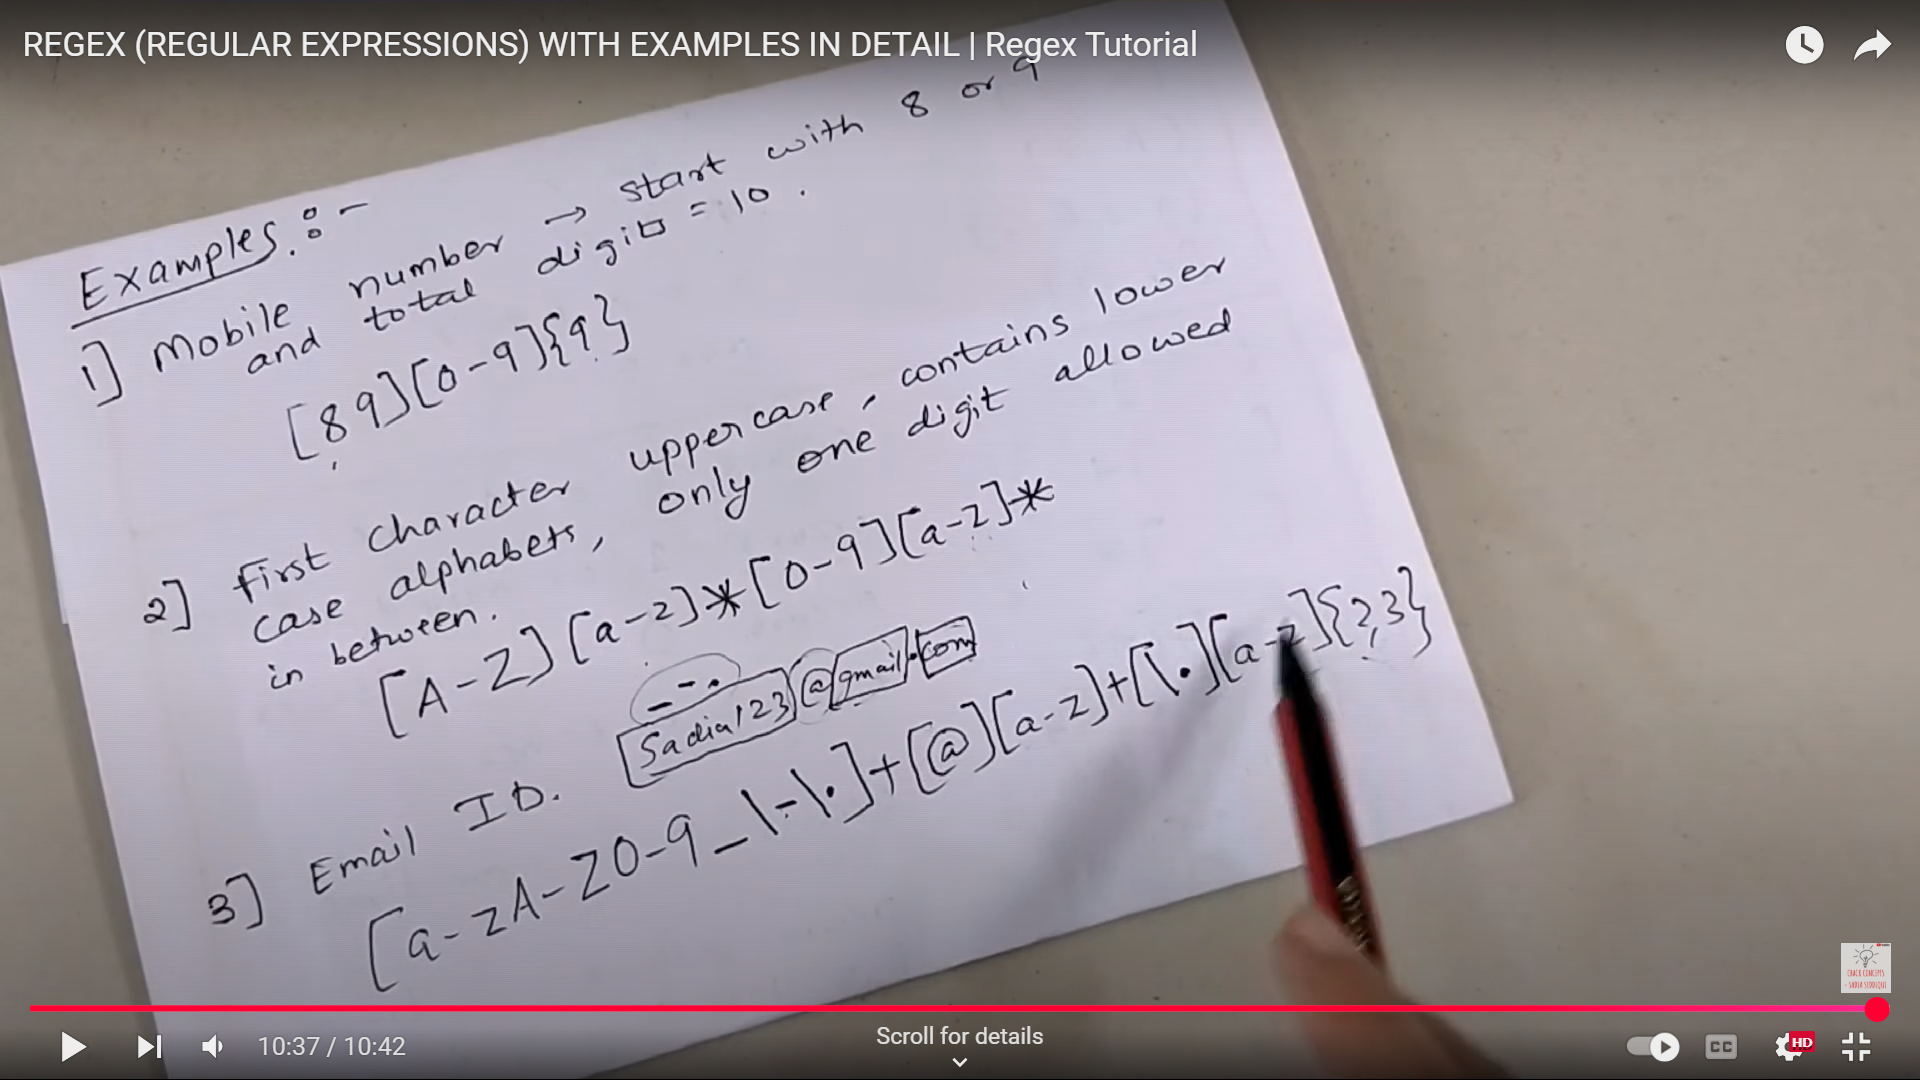 REGEX (REGULAR EXPRESSIONS) WITH EXAMPLES IN DETAIL | Regex Tutorial
Examples :-
1] Mobile number → start with 8 or 9
and total digits = 10 .
[89][0-9]{9}
2] First character uppercase, contains lower
case alphabets, only one digit allowed
in between.
[A-Z][a-z]*[0-9][a-z]*
_ - .
3] Email ID. Sadia123@gmail.com
[a-zA-Z0-9_\-\.]+[@][a-z]+[\.][a-z]{2,3}
CRACK CONCEPTS
- SADIA SIDDIQUI
10:37 / 10:42
Scroll for details
CC
HD